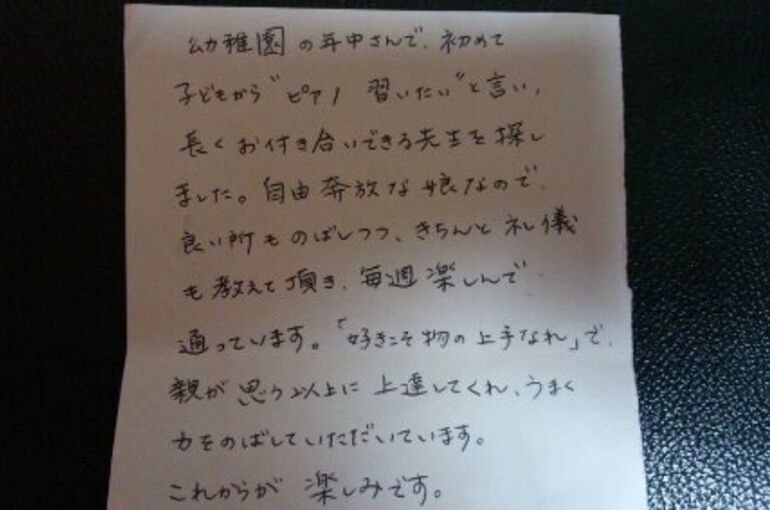 幼稚園の年中さんで、初めて
子どもから"ピアノ 習いたい"と言い、
長くお付き合いできる先生を探し
ました。自由奔放な娘なので、
良い所ものばしつつ、きちんと礼儀
も教えて頂き、毎週楽しんで
通っています。「好きこそ物の上手なれ」で、
親が思う以上に上達してくれ、うまく
力をのばしていただいています。
これからが楽しみです。